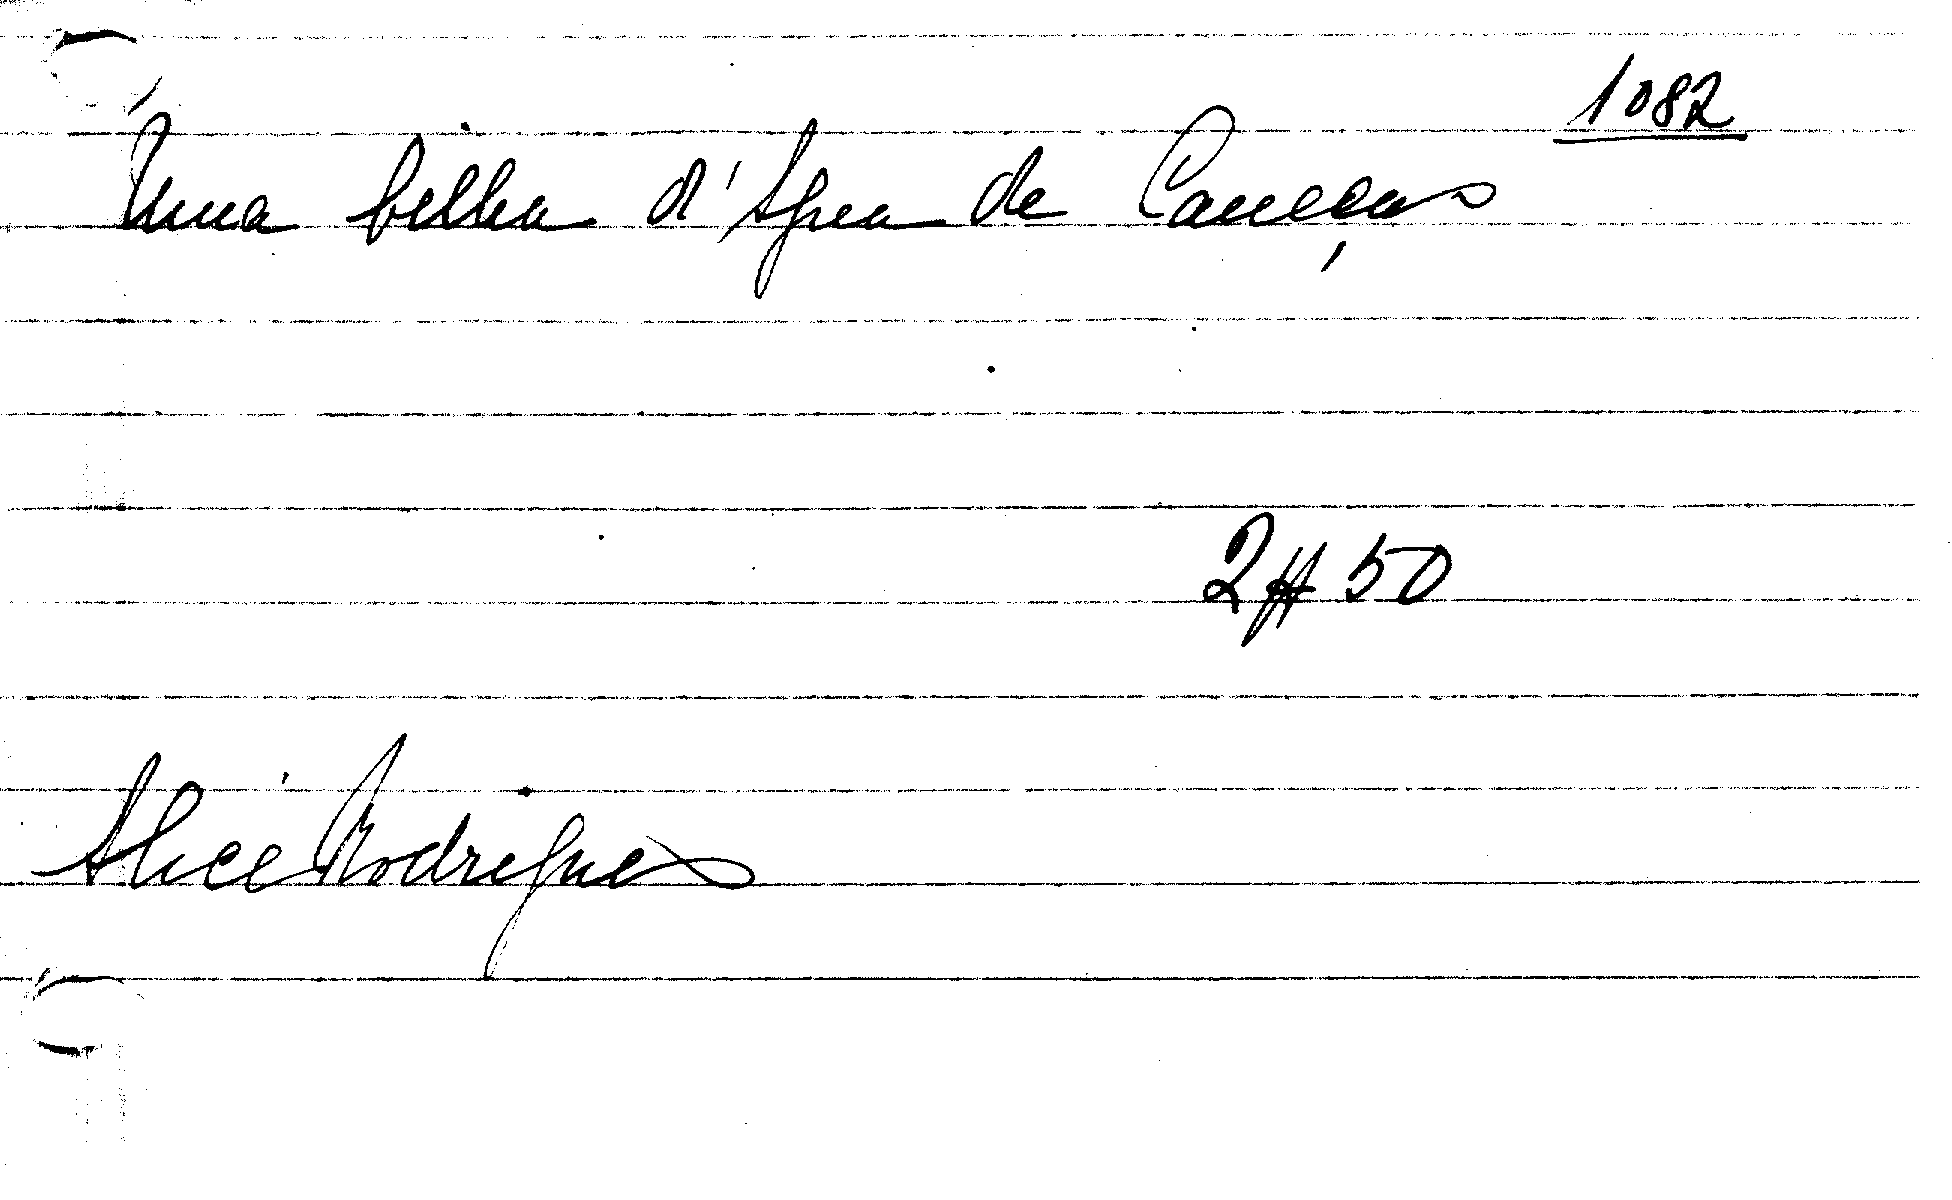 1082
Uma bilha d'Agua de Caneças
2$50
Alice Rodrigues